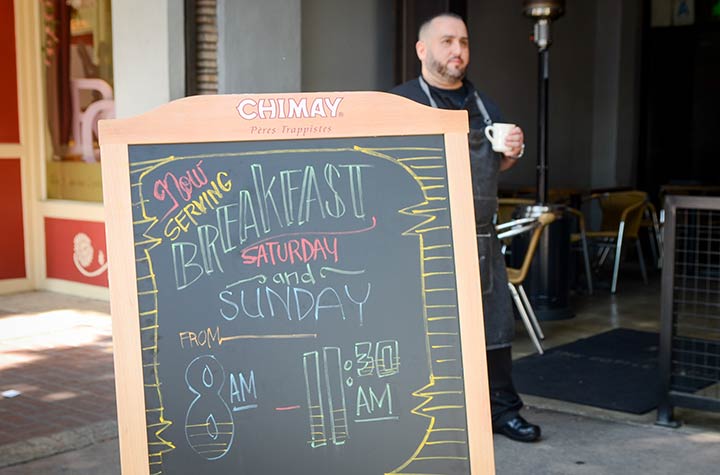 CHIMAY®
Pères Trappistes
Now
SERVING
BREAKFAST
SATURDAY
and
SUNDAY
FROM
8AM – 11:30AM